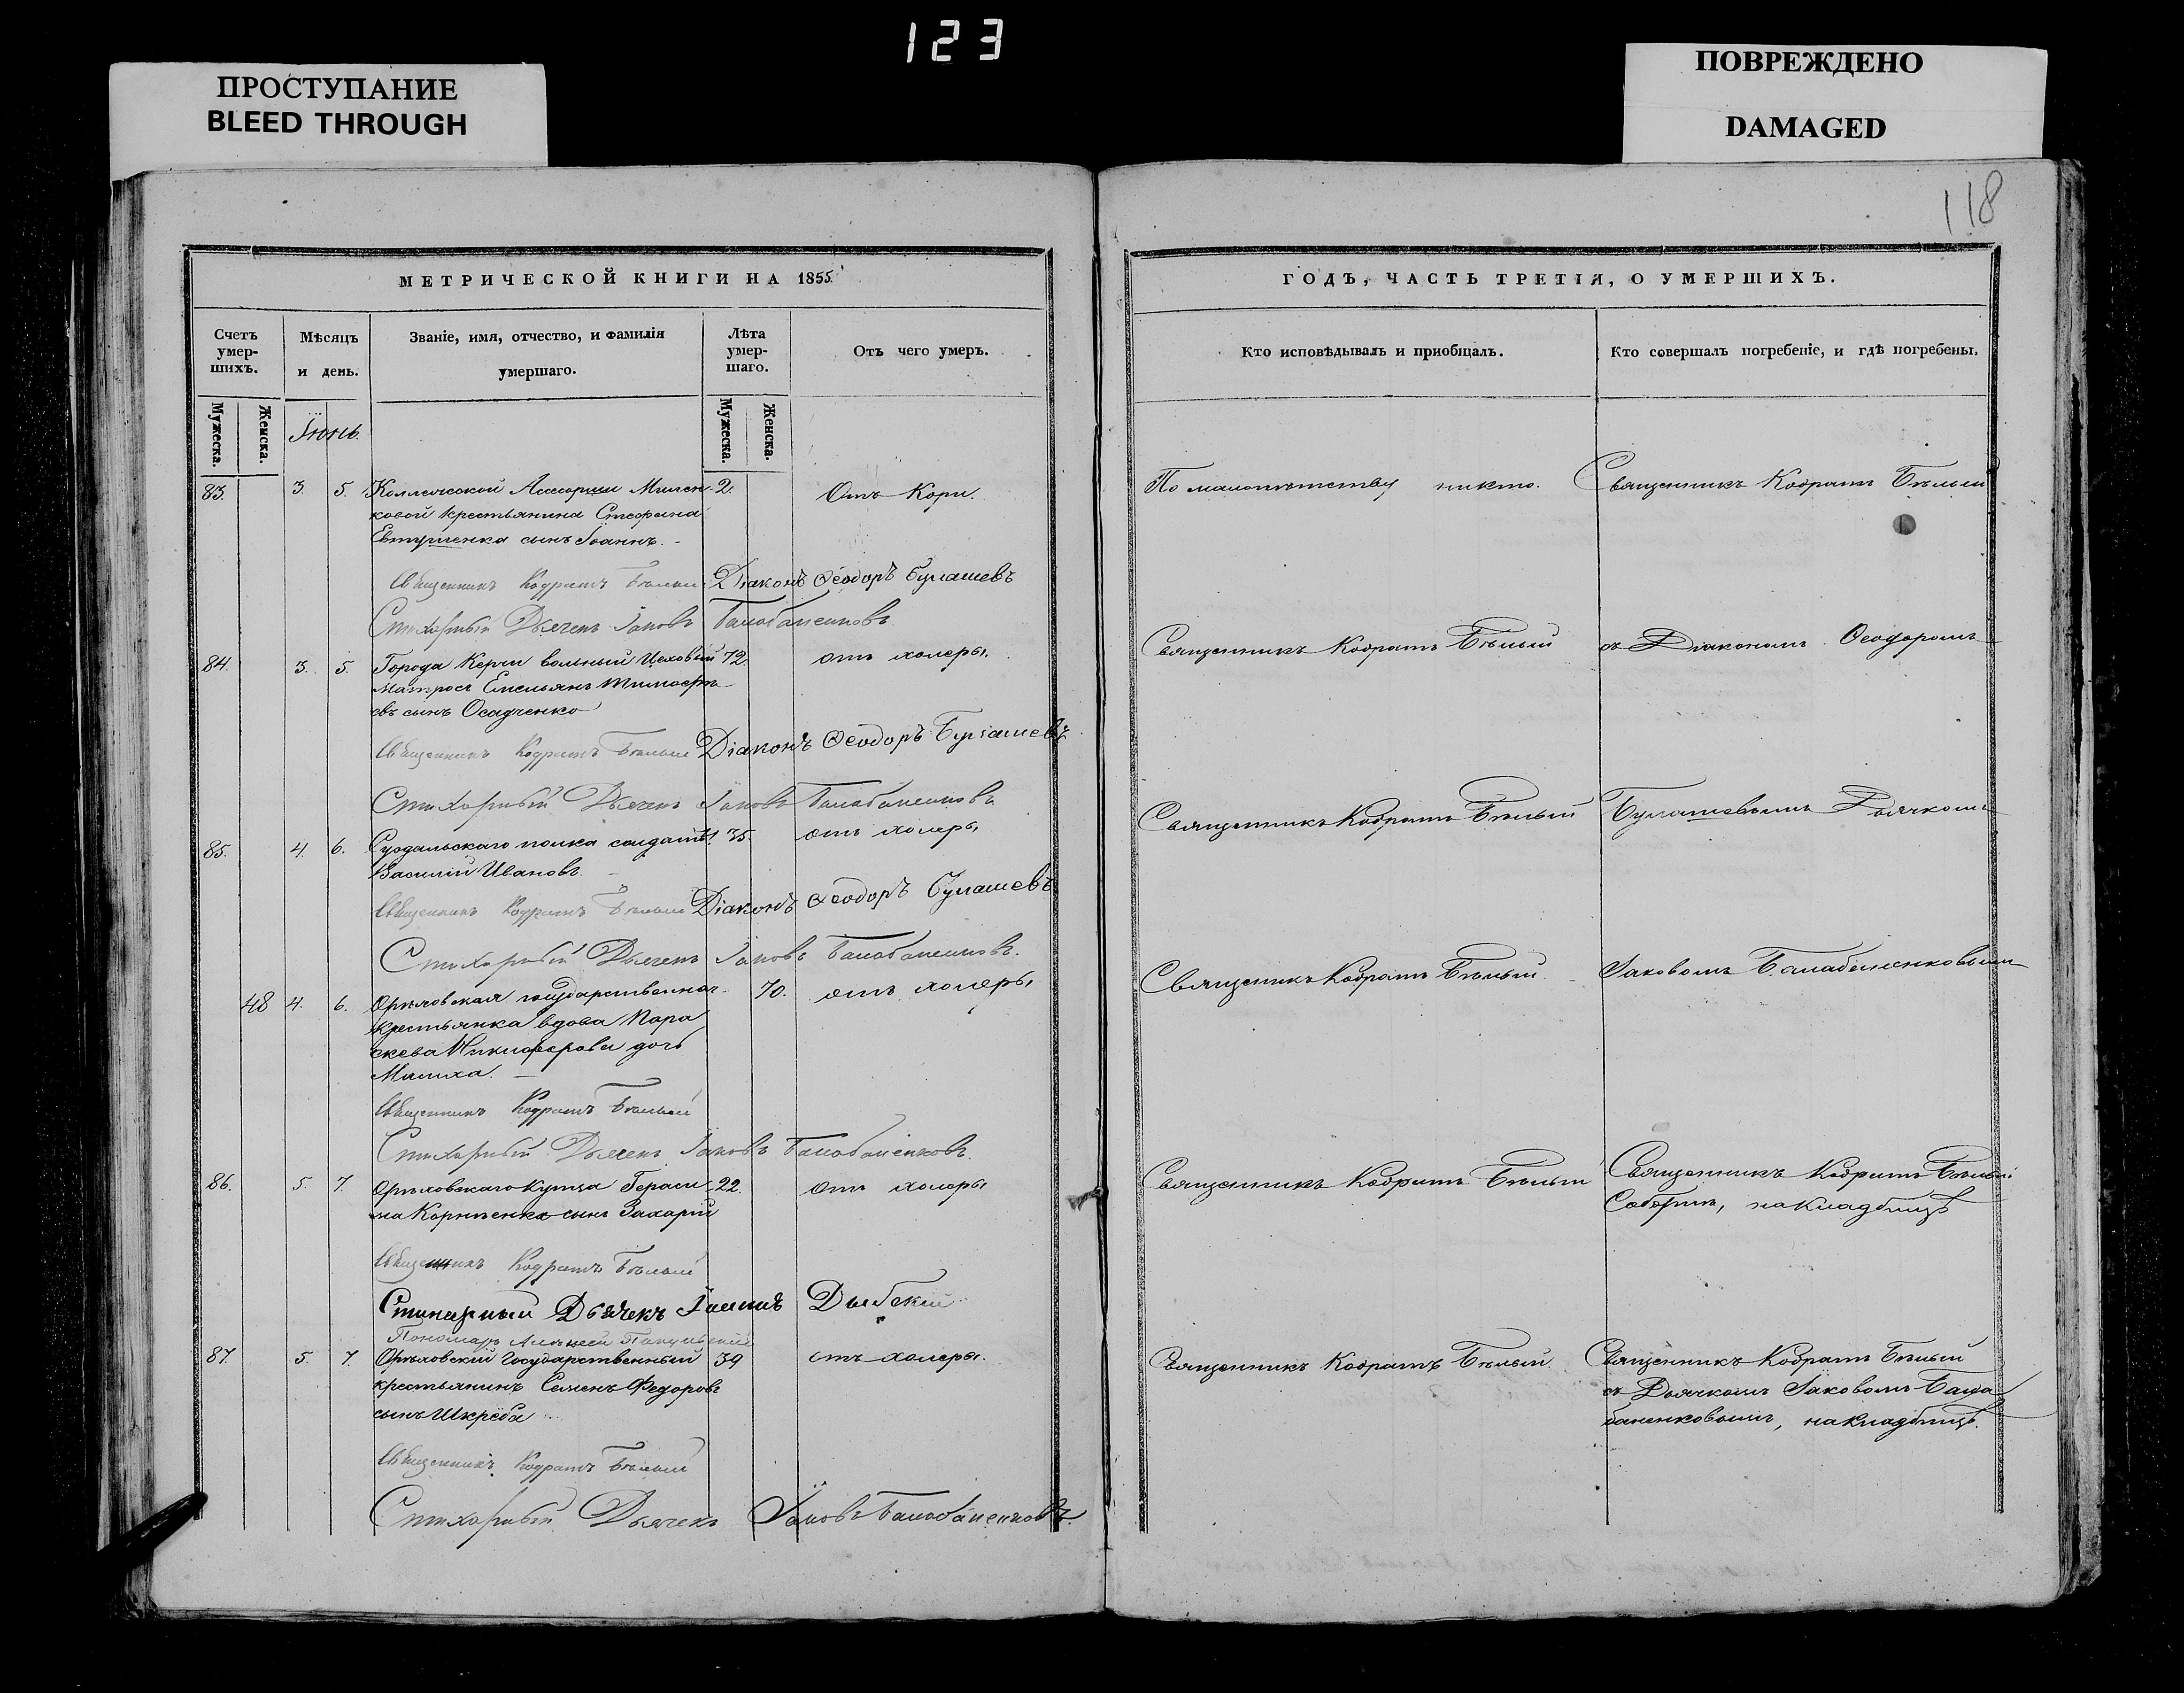 123
ПРОСТУПАНИЕ
BLEED THROUGH
ПОВРЕЖДЕНО
DAMAGED
118
МЕТРИЧЕСКОЙ КНИГИ НА 1855
Счетъ умер-шихъ.
Мѣсяцъ и день.
Званіе, имя, отчество, и фамилія умершаго.
Лѣта умер-шаго.
Отъ чего умеръ.
Мужеска.
Женска.
Іюнь.
Мужеска.
Женска.
83. 3. 5. Коллежской Ассесорши Милен- 2. Отъ Кори.
ковой крестьянина Стефана
Евтушенка сынъ Іоаннъ.
Священникъ Кодратъ Бѣлый Діаконъ Ѳеодоръ Булашевъ
Стихарный Дьячекъ Іаковъ Балабаненковъ
84. 3. 5. Города Керчи вольный Цеховый 72. отъ холеры.
матросъ Емельянъ Тимофѣ-
евъ сынъ Осадченко
Священникъ Кодратъ Бѣлый Діаконъ Ѳеодоръ Булашевъ
Стихарный Дьячекъ Іаковъ Балабаненковъ
85. 4. 6. Суздальскаго полка солдатъ 35. отъ холеры
Василій Ивановъ
Священникъ Кодратъ Бѣлый Діаконъ Ѳеодоръ Булашевъ
Стихарный Дьячекъ Іаковъ Балабаненковъ.
48 4. 6. Орѣховская государственная 70. отъ холеры
крестьянка вдова Пара
скева Никифорова дочь
Священникъ Кодратъ Бѣлый
Стихарный Дьячекъ Іаковъ Балабаненковъ.
86. 5. 7. Орѣховскаго купца Гераси 22. отъ холеры
ма Корнѣенка сынъ Захарій
Священникъ Кодратъ Бѣлый
Стихарный Дьячекъ Іоаннъ
Пономарь Алексѣй
87. 5. 7. Орѣховскій государственный 39 отъ холеры.
крестьянинъ Семенъ Федоровъ
сынъ Шкреба
Священникъ Кодратъ Бѣлый
Стихарный Дьячекъ Іаковъ Балабаненковъ.
ГОДЪ, ЧАСТЬ ТРЕТІЯ, О УМЕРШИХЪ.
Кто исповѣдывалъ и пріобщалъ.
Кто совершалъ погребеніе, и гдѣ погребены.
По малолѣтству никто. Священникъ Кодратъ Бѣлый
Священникъ Кодратъ Бѣлый съ Діакономъ Ѳеодоромъ
Священникъ Кодратъ Бѣлый Булашевымъ Дьячкомъ
Священикъ Кодратъ Бѣлый Іаковомъ Балабаненковымъ
Священникъ Кодратъ Бѣлый Священникъ Кодратъ Бѣлый
Соборнѣ, на кладбищѣ
Священникъ Кодратъ Бѣлый. Священникъ Кодратъ Бѣлый
съ Дьячкомъ Іаковомъ Бала
баненковымъ, на кладбищѣ.